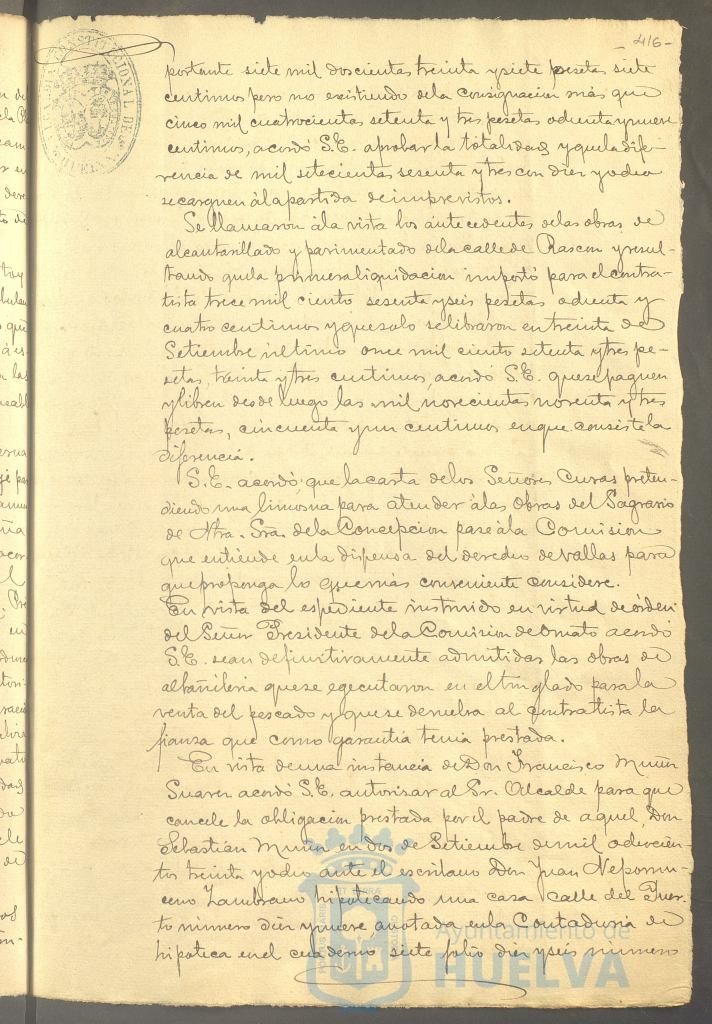 -416-
portante siete mil doscientas treinta y siete pesetas siete
centimos pero no existiendo dela consignacion más que
cinco mil cuatrocientas setenta y tres pesetas ochenta y nueve
centimos, acordó S.E. aprobar la totalidad, y quela dife-
rencia de mil setecientas sesenta y tres con diez y ocho
se carguen á la partida de imprevistos.
Se llamaron á la vista los antecedentes delas obras de
alcantarillado y pavimentado dela calle de Rascon y resul-
tando quela primera liquidacion importó para el contra-
tista trece mil ciento sesenta y seis pesetas ochenta y
cuatro centimos y que solo se libraron en treinta de
Setiembre último once mil ciento setenta y tres pe-
setas, treinta y tres centimos, acordó S.E. que se paguen
y libren desde luego las mil novecientas noventa y tres
pesetas, cincuenta y un centimos en que consiste la
diferencia.
S.E. acordó, que la carta delos Señores Curas preten-
diendo una limosna para atender á las Obras del Sagrario
de Ntra. Sra. dela Concepcion pase á la Comision
que entiende en la dispensa del derecho de vallas para
que proponga lo que más conveniente considere.
En vista del espediente instruido en virtud de órden
del Señor Presidente dela Comision de Ornato acordó
S.E. sean definitivamente admitidas las obras de
albañileria que se egecutaron en el tinglado para la
venta del pescado y que se devuelva al contratista la
fianza que como garantia tenia prestada.
En vista de una instancia de Don Francisco Muñoz
Suarez acordó S.E. autorizar al Sr. Alcalde para que
cancele la obligacion prestada por el padre de aquel, Don
Sebastian Muñoz en dos de Setiembre de mil ochocien-
tos treinta y ocho ante el escribano Don Juan Nepomu-
ceno Zambrano hipotecando una casa calle del Puer-
to número diez y nueve anotada en la Contaduria de
hipoteca en el cuaderno siete folio diez y seis número
Ayuntamiento de
HUELVA